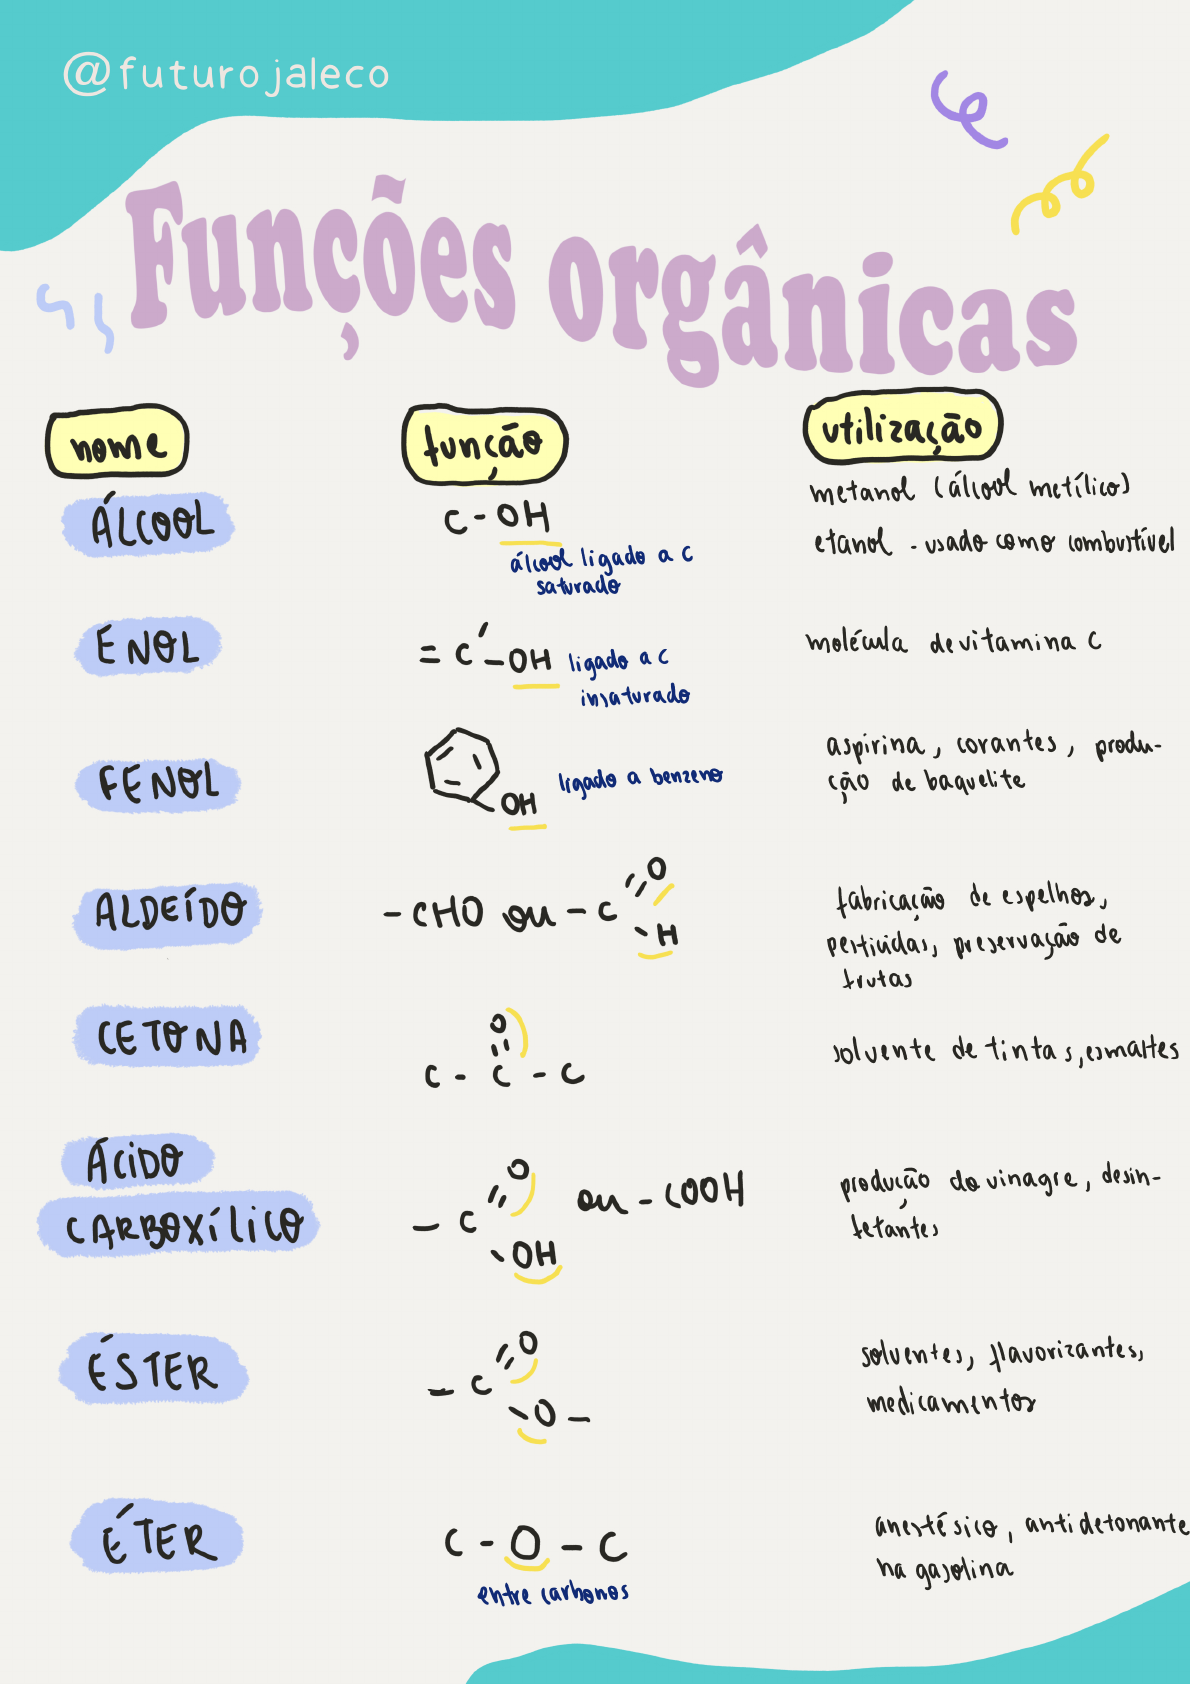 @futurojaleco
Funções orgânicas
nome função utilização
ÁLCOOL
C - OH
álcool ligado a C
saturado
metanol (álcool metílico)
etanol - usado como combustível
ENOL
= C - OH
ligado a C
insaturado
molécula de vitamina C
FENOL
OH
ligado a benzeno
aspirina, corantes, produ-
ção de baquelite
ALDEÍDO
O
- CHO ou - C
- H
fabricação de espelhos,
pesticidas, preservação de
frutas
CETONA
O
C - C - C
solvente de tintas, esmaltes
ÁCIDO
CARBOXÍLICO
O
- C ou - COOH
- OH
produção do vinagre, desin-
fetantes
ÉSTER
O
- C
- O -
solventes, flavorizantes,
medicamentos
ÉTER
C - O - C
entre carbonos
anestésico, antidetonante
na gasolina